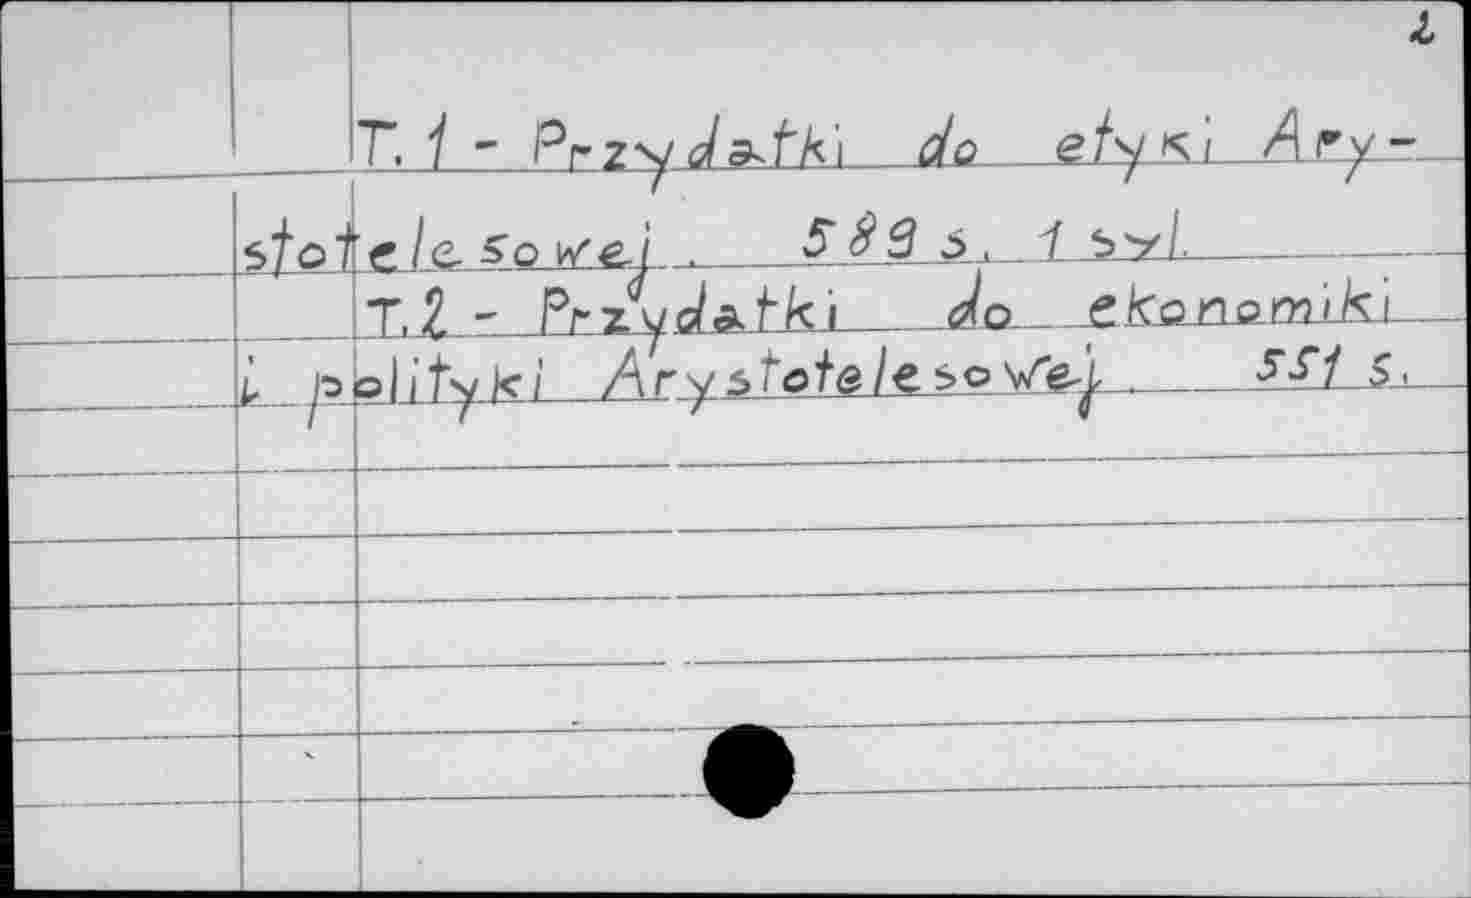 2
T. 1 - Przydatki do etyki Ary-
stotelesowej. 589 s. 1 syl.
T. 2 - Przydatki do ekonomiki
i polityki Arystotelesowej. 551 s.